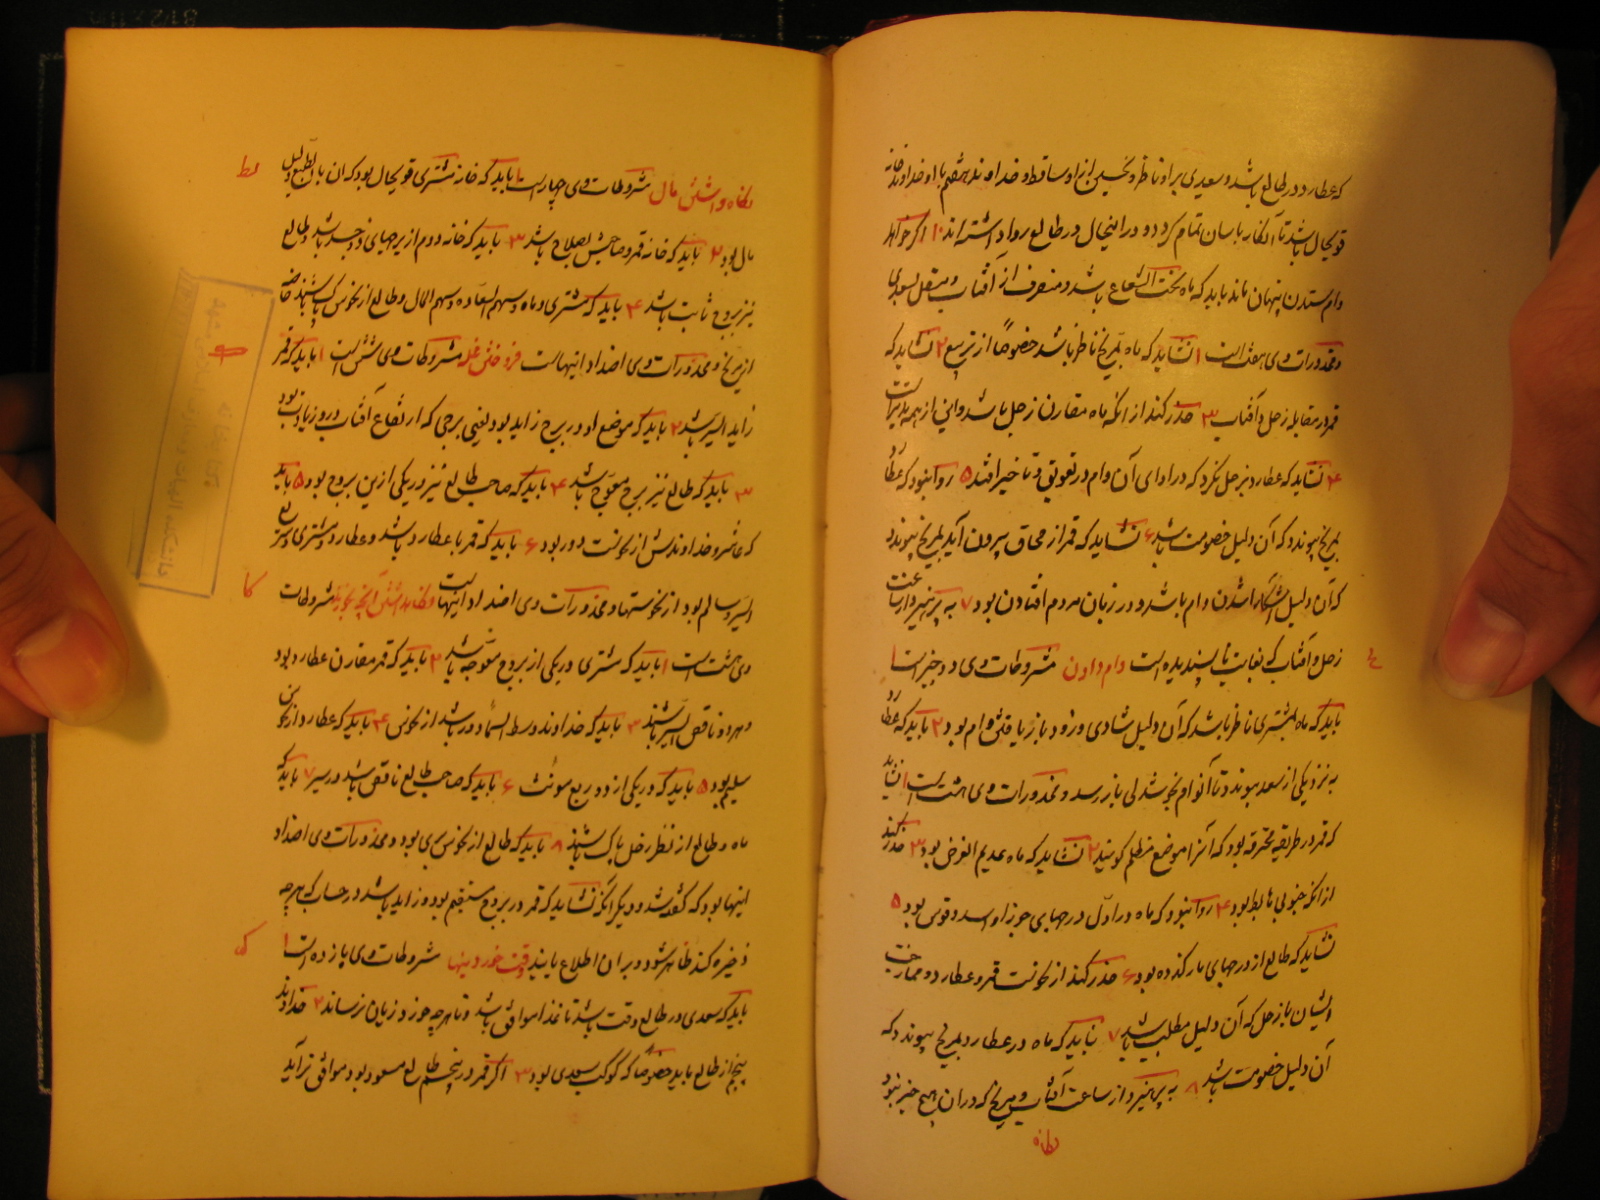 که عطارد در طالع باشد و سعدی برو ناظر و نحسین ازو ساقط و خداوند هفتم با او خداوند خانه
قویحال باشد تا آن کار باسان تمام گردد و در اینحال در طالع روا داشته اند ۱۰ اگر خواهد
وام ستدن پنهان ماند باید که ماه تحت الشعاع باشد و منصرف از آفتاب و متصل بسعدی
و محذورات وی هفت است ۱ نشاید که ماه بمریخ ناظر باشد خصوصاً از تربیع ۲ نشاید که
قمر در مقابله زحل و آفتاب ۳ حذر کند از انکه ماه مقارن زحل باشد و این از همه بدتر است
۴ نشاید که عطارد بزحل نگرد که در ادای آن وام در تعویق و تاخیر افتد ۵ روا نبود که عطارد
بمریخ پیوندد که آن دلیل خصومت باشد ۶ نشاید که قمر از محاق بیرون آید بمریخ پیوندد
که آن دلیل آشکارا شدن وام باشد و در زبان مردم افتادن بود ۷ به پرهیزد از ساعت
زحل و آفتاب که بغایت ناپسندیده است وام دادن مشروطات وی دو چیز است ۱
باید که ماه بمشتری ناظر باشد که آن دلیل شادی و زود باز یافتن وام بود ۲ باید که عطارد
به نزدیکی از سعد پیوندد تا آن وام بخوشدلی باز رسد و محذورات وی هشت است ۱ نشاید
که قمر در طریقه محترقه بود که آنرا موضع مظلم گویند ۲ نشاید که ماه عدیم العرض بود ۳ حذر کند
از انکه جنوبی هابط بود ۴ روا نبود که ماه در اوّل درجهای جوزا و اسد و قوس بود ۵
نشاید که طالع از درجهای بارکنده بود ۶ حذر کند از نحوست قمر و عطارد و ممازجت
ایشان باز زحل که آن دلیل مطلب باشد ۷ نباید که ماه در عطارد بمریخ پیوندد که
آن دلیل خصومت باشد ۸ به پرهیزد از ساعت آفتاب و مریخ که در ان هیچ خیر نبود
نگاه
نگاه داشتن مال مشروطات وی چهار است ۱ باید که خانه مشتری قویحال بود که ان بالطبع دلیل
مال بود ۲ باید که خانه قمر و صاحبش بصلاح باشد ۳ باید که خانه دوم از برجهای ذوجسد باشد و طالع
نیز برج ثابت باشد ۴ باید که مشتری و ماه و سهم السعاده و سهم المال و طالع از نحوس پاک باشند خاصه
از مریخ و محذورات وی اضداد اینهاست فروختن غله مشروطات وی شش است ۱ باید که قمر
زاید السیر باشد ۲ باید که موضع او در برج زاید بود یعنی برجی که ارتفاع آفتاب درو زیادت بود
۳ باید که طالع نیز برج معوج باشد ۴ باید که صاحب طالع نیز در یکی ازین بروج بود ۵ باید
که عاشر و خداوندش از نحوست دور بود ۶ باید که قمر با عطارد باشد و عطارد و مشتری سریع
السیر و سالم بود از نحوستها و محذورات وی اضداد اینهاست نگاهداشتن آنچه بخرند مشروطات
وی هشت است ۱ باید که مشتری در یکی از بروج معوجه باشد ۲ باید که قمر مقارن عطارد بود
و هر دو ناقص السیر باشند ۳ باید که خداوند وسط السماء دور باشد از نحوس ۴ باید که عطارد از نحوس
سلیم بود ۵ باید که در یکی از دو ربع مونث ۶ باید که صاحب طالع ناقص باشد در سیر ۷ باید که
ماه و طالع از نظر زحل پاک باشند ۸ باید که طالع از نحوس بری بود و محذورات وی اضداد
اینها بود که گفته شد و دیگر آنکه نشاید که قمر در بروج مستقیم بود و زاید باشد در حساب که هر چه
ذخیره کند ظاهر شود و بر ان اطلاع یابند وقت خوردنیها مشروطات وی یازده است ۱
باید که سعدی در طالع وقت باشد تا غذا موافق باشد و تا هر چه خورد زیان نرساند ۲ خداوند
پنجم از طالع باید خصوصاً که کوکب سعدی بود ۳ اگر قمر در پنجم طالع مسعود بود موافق تر آید